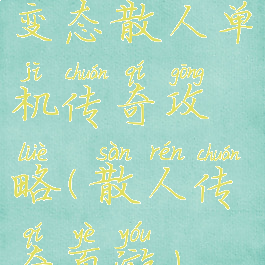 变态散人单
jī chuán qí gōng
机传奇攻
lüè sàn rén chuán
略(散人传
qí yè yóu
奇页游)